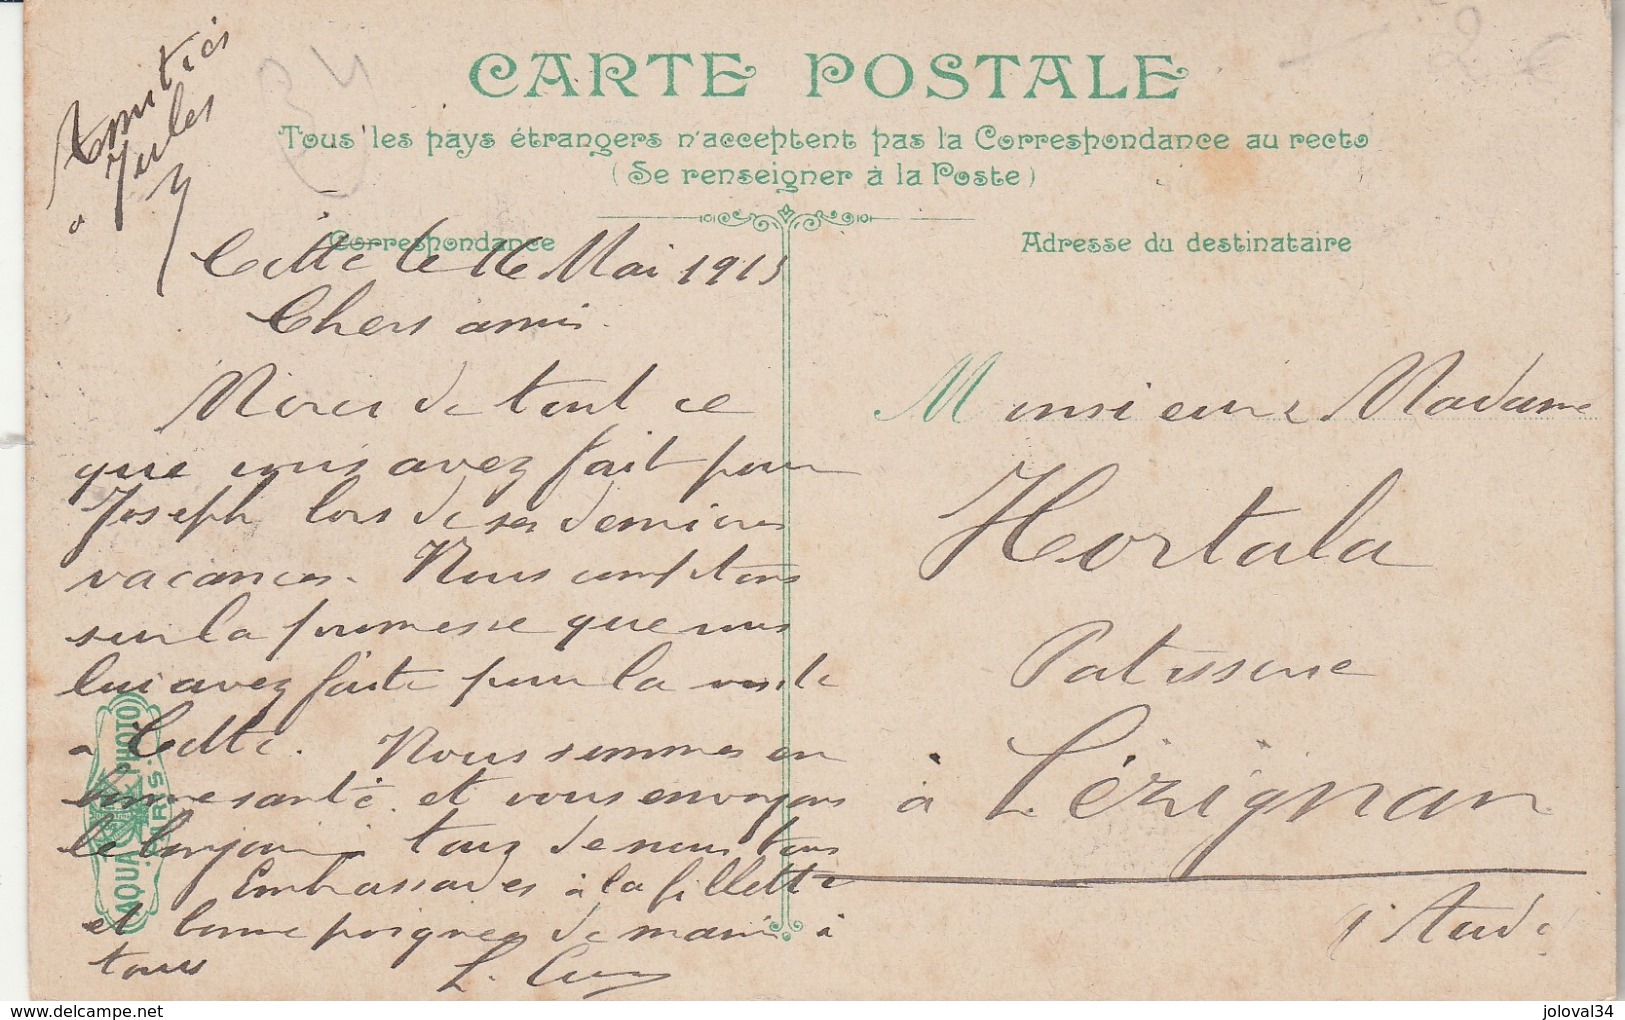 Amitiés
à Jules
34
2 €
CARTE POSTALE
Tous les pays étrangers n'acceptent pas la Correspondance au recto
(Se renseigner à la Poste)
Correspondance
Cette le 16 Mai 1913
Chers amis.
Merci de tout ce
que vous avez fait pour
Joseph lors de ses dernières
vacances. Nous comptons
sur la promesse que vous
lui avez faite pour la
à Cette. Nous sommes en
bonne santé et vous envoyons
le bonjour de nous tous
Embrassades à la fillette
et bonne poignée de main à
tous
L.
AQUA PHOTO
PARIS.
Adresse du destinataire
Monsieur Madame
Hortala
Patisserie
à Lézignan
(Aude
joloval34
delcampe.net